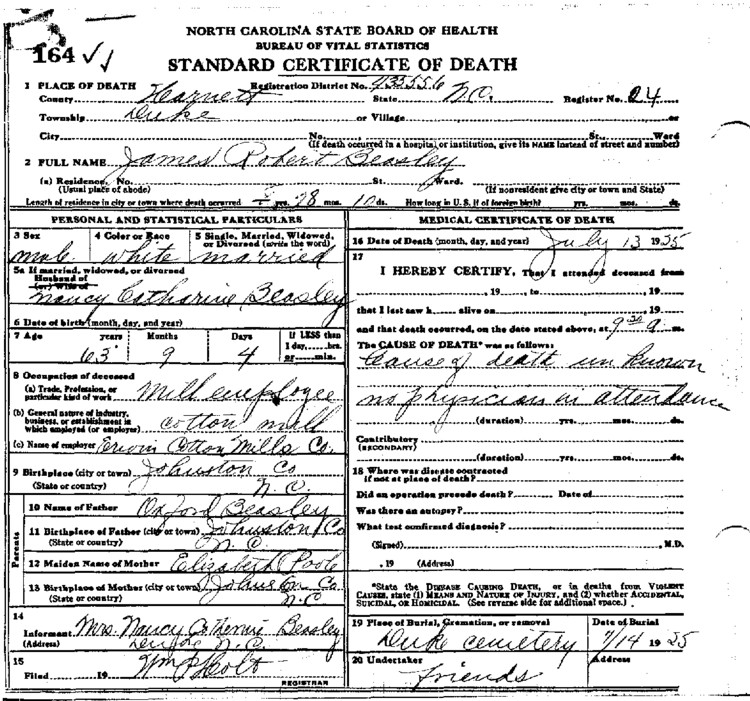 164 ✓✓
NORTH CAROLINA STATE BOARD OF HEALTH
BUREAU OF VITAL STATISTICS
STANDARD CERTIFICATE OF DEATH
1 PLACE OF DEATH Registration District No. 4335556
County Harnett State N.C. Register No. 24
Township Duke or Village or
City No. St. Ward
(If death occurred in a hospital or institution, give its NAME instead of street and number)
2 FULL NAME James Robert Beasley
(a) Residence, No. St. Ward.
(Usual place of abode) (If nonresident give city or town and State)
Length of residence in city or town where death occurred yrs. 28 mos. 10 ds. How long in U. S. if of foreign birth? yrs. mos. ds.
PERSONAL AND STATISTICAL PARTICULARS
3 Sex 4 Color or Race 5 Single, Married, Widowed, or Divorced (write the word)
male white married
5a If married, widowed, or divorced
Husband of
(or) Wife of
Nancy Catharine Beasley
6 Date of birth (month, day, and year)
7 Age years Months Days If LESS than
1 day, hrs.
63 9 4 or min.
8 Occupation of deceased
(a) Trade, Profession, or
particular kind of work Mill employee
(b) General nature of industry,
business, or establishment in
which employed (or employer) cotton mill
(c) Name of employer Erwin Cotton Mills Co.
9 Birthplace (city or town) Johnston Co
(State or country) N.C.
Parents
10 Name of Father Oxford Beasley
11 Birthplace of Father (city or town) Johnston Co
(State or country) N.C.
12 Maiden Name of Mother Elizabeth Poole
13 Birthplace of Mother (city or town) Johnston Co
(State or country) N.C
14
Informant Mrs. Nancy Catherine Beasley
(Address) Duke N.C.
15
Filed 19 Wm P Holt
REGISTRAR
MEDICAL CERTIFICATE OF DEATH
16 Date of Death (month, day, and year) July 13 1925
17
I HEREBY CERTIFY, That I attended deceased from
, 19 , to , 19
that I last saw h alive on , 19
and that death occurred, on the date stated above, at 9 30 a. m.
The CAUSE OF DEATH* was as follows:
Cause of death unknown
no physician in attendance
(duration) yrs. mos. ds.
Contributory
(SECONDARY)
(duration) yrs. mos. ds.
18 Where was disease contracted
if not at place of death?
Did an operation precede death? Date of
Was there an autopsy?
What test confirmed diagnosis?
(Signed) , M.D.
, 19 (Address)
*State the DISEASE CAUSING DEATH, or in deaths from VIOLENT
CAUSES, state (1) MEANS AND NATURE OF INJURY, and (2) whether ACCIDENTAL,
SUICIDAL, OR HOMICIDAL. (See reverse side for additional space.)
19 Place of Burial, Cremation, or removal Date of Burial
Duke cemetery 7/14 1925
20 Undertaker Address
friends